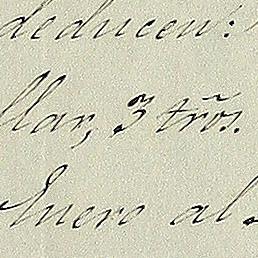 deducen:
llar, 3 trõs.
Enero al